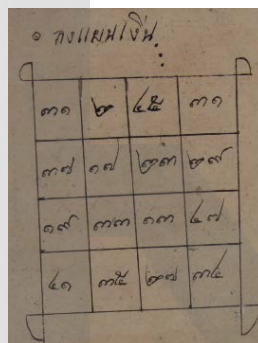 ๏ ลงแผ่นเงิน
๓๑ ๒ ๔๕ ๓๑
๓๗ ๑๗ ๒๓ ๒๙
๑๙ ๓๓ ๑๓ ๔๗
๔๑ ๓๕ ๒๗ ๓๔